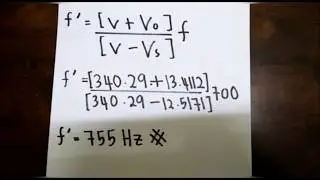 f' = [V + Vo] / [V - Vs] f
f' = [340.29 + 13.4112] / [340.29 - 12.5171] 700
f' = 755 Hz ※